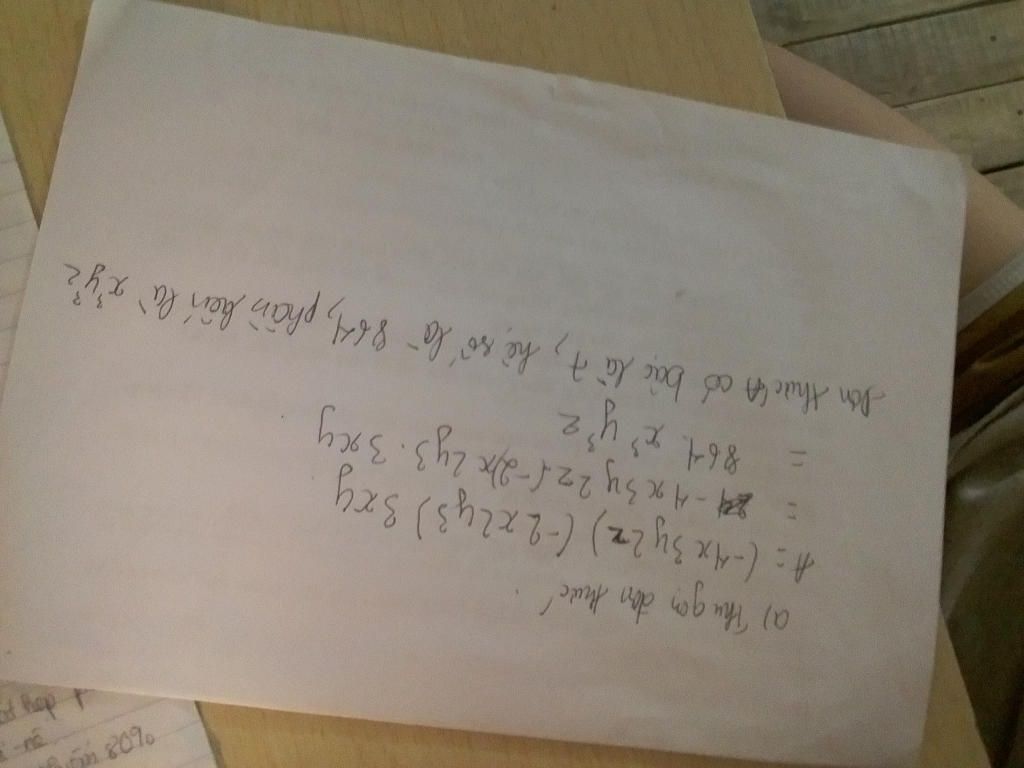 a) Thu gọn đơn thức
A = (-4x3y2z) (-2x2y3) 3xy
= -4x3y2z(-2)x2y3.3xy
= 864 x³y³z
Đơn thức A có bậc là 7, hệ số là 864, phần biến là x³y³z
80%